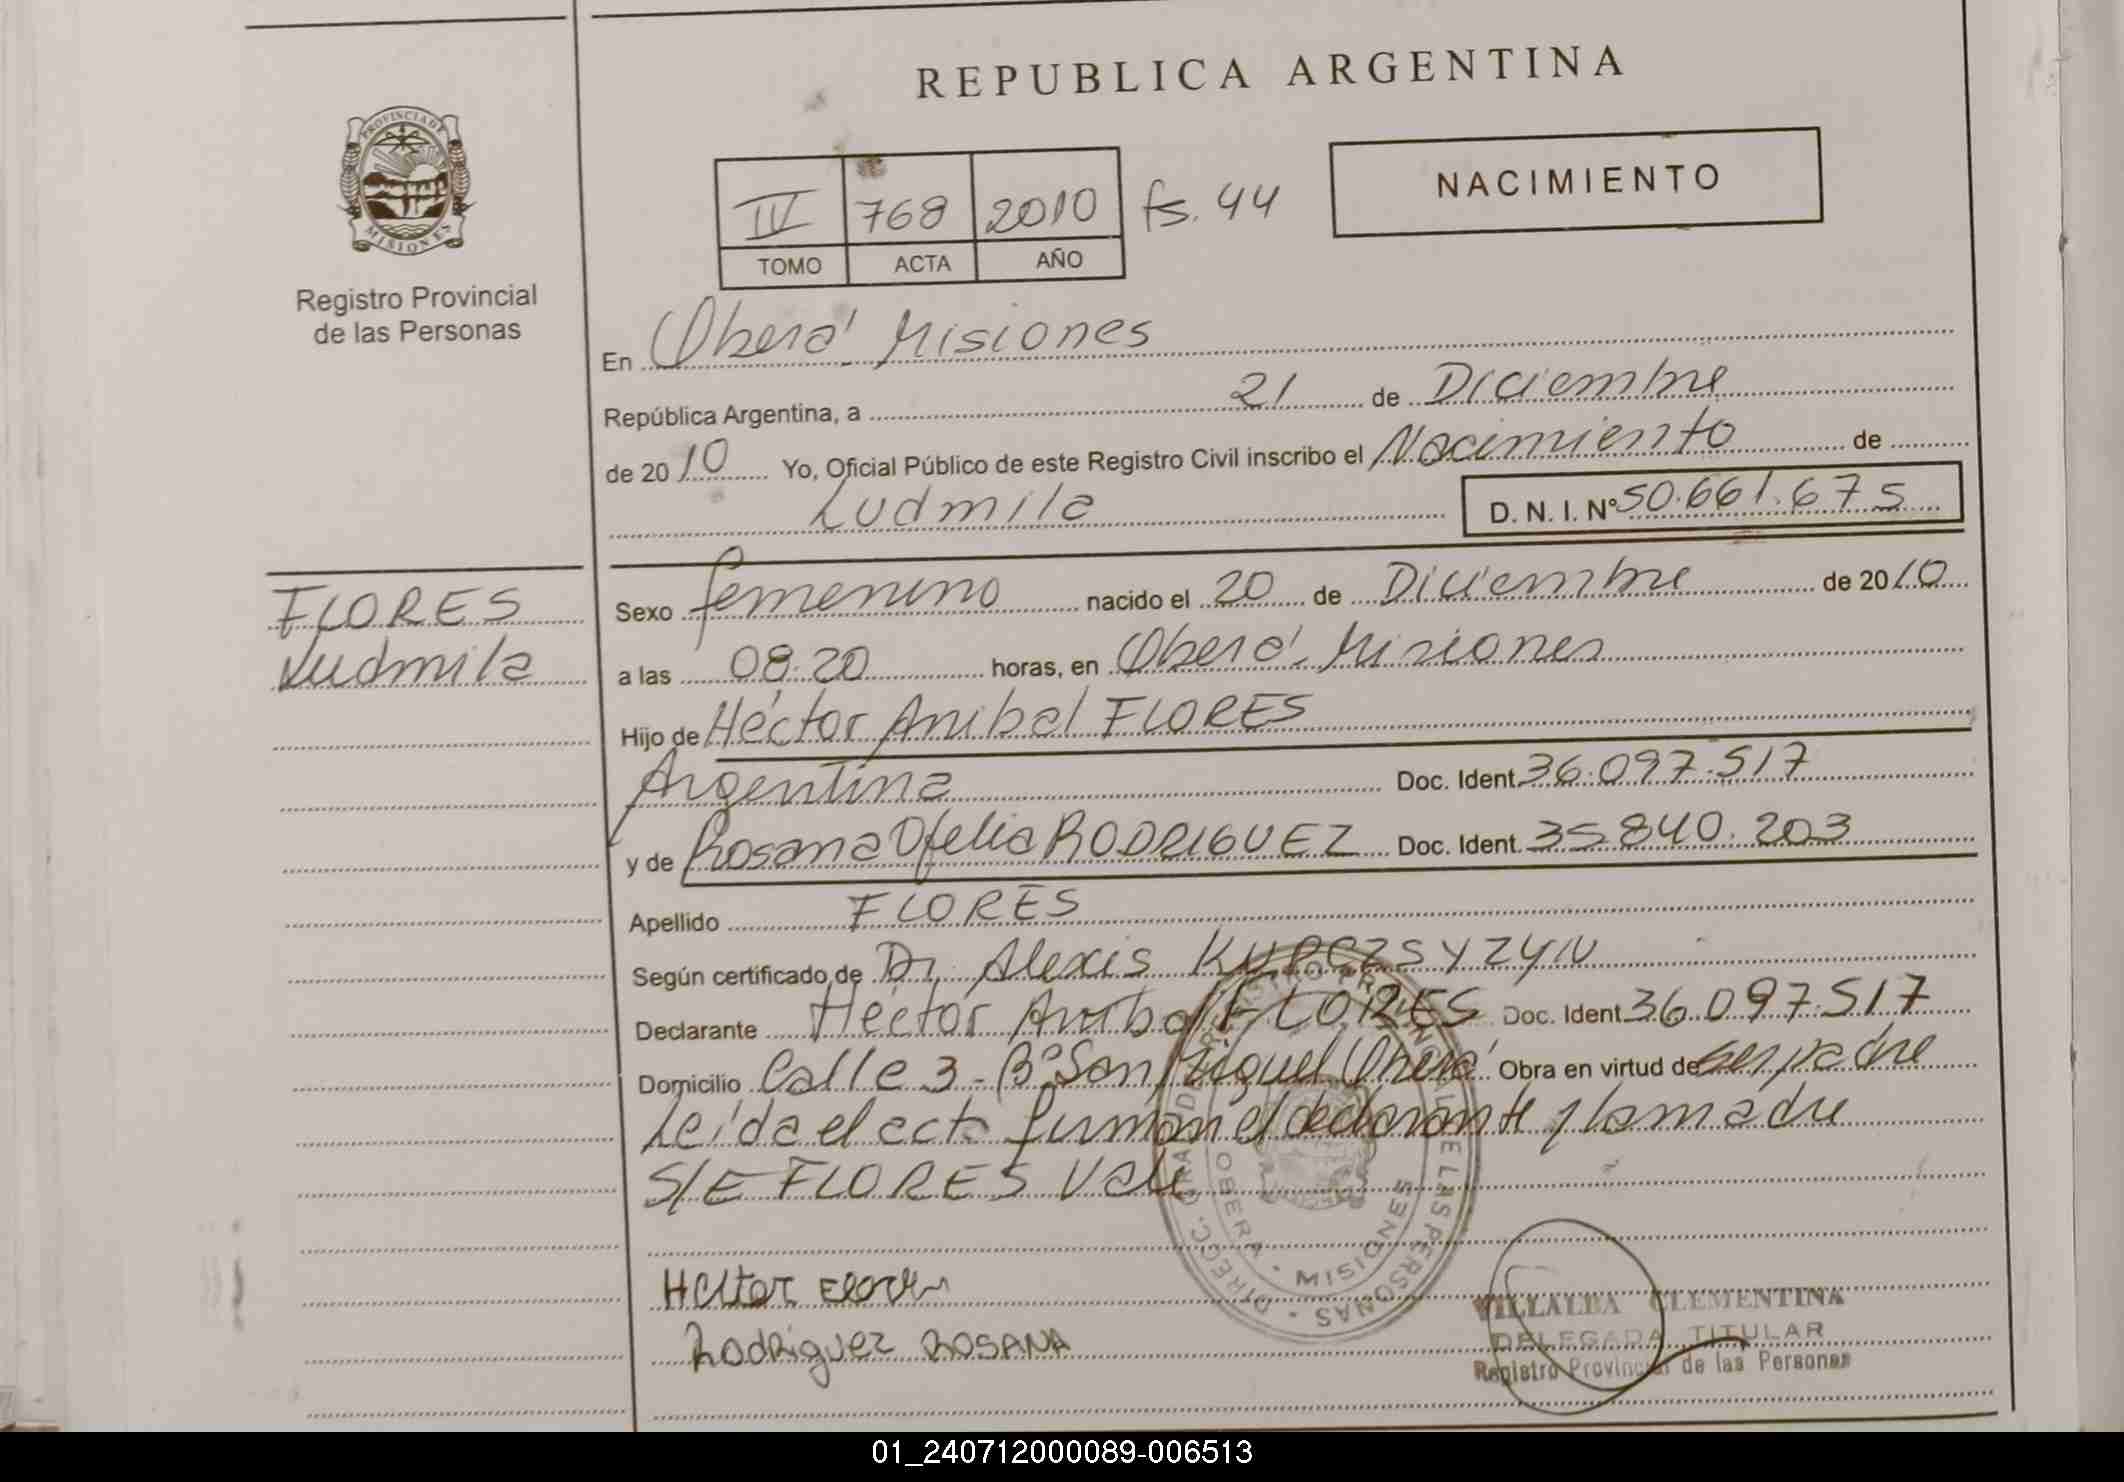 REPUBLICA ARGENTINA
PROVINCIA DE MISIONES
NACIMIENTO
IV 768 2010 fs. 44
TOMO ACTA AÑO
Registro Provincial
de las Personas
En Oberá Misiones
República Argentina, a 21 de Diciembre
de 2010 Yo, Oficial Público de este Registro Civil inscribo el Nacimiento de
Ludmila D. N. I. Nº 50.661.675
FLORES
Ludmila
Sexo femenino nacido el 20 de Diciembre de 2010
a las 08:20 horas, en Oberá Misiones
Hijo de Héctor Anibal FLORES
Argentina Doc. Ident. 36.097.517
y de Rosana Ofelia RODRIGUEZ Doc. Ident. 35840.203
Apellido FLORES
Según certificado de Dr. Alexis KUPCZSYZYN
Declarante Héctor Anibal FLORES Doc. Ident 36.097.517
Domicilio Calle 3 - Bº San Miguel Oberá Obra en virtud de ser padre
Leída el acta firman el declarante y la madre
S/E FLORES Vale
DIRECC. GRAL. DEL REGISTRO PROVINCIAL DE LAS PERSONAS
OBERA - MISIONES
Hector Flores
Rodriguez ROSANA
VILLALBA CLEMENTINA
DELEGADA TITULAR
Registro Provincial de las Personas
01_240712000089-006513